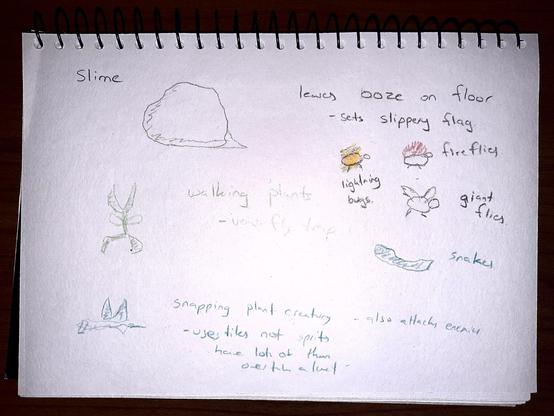 Slime
leaves ooze on floor
- sets slippery flag.
fireflies
lightning
bugs.
giant
flies
walking plants
- fly trap
snakes
snapping plant creature
- also attacks enemies
- uses tiles not sprits
have lots of them
over take a level